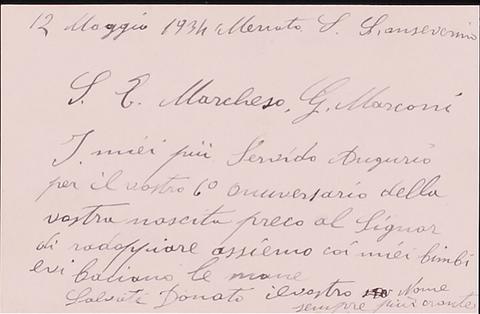 12 Maggio 1934 Mercato S. Sanseverino
S. E. Marcheso, G. Marconi
I miei più Servido Augurio
per il vostro 6º anniversario della
vostra nascita preco al Signor
di radoppiare assiemo coi miei bimbi
evi baciano le mane
Salvati Donato il vostro Nome
sempre più